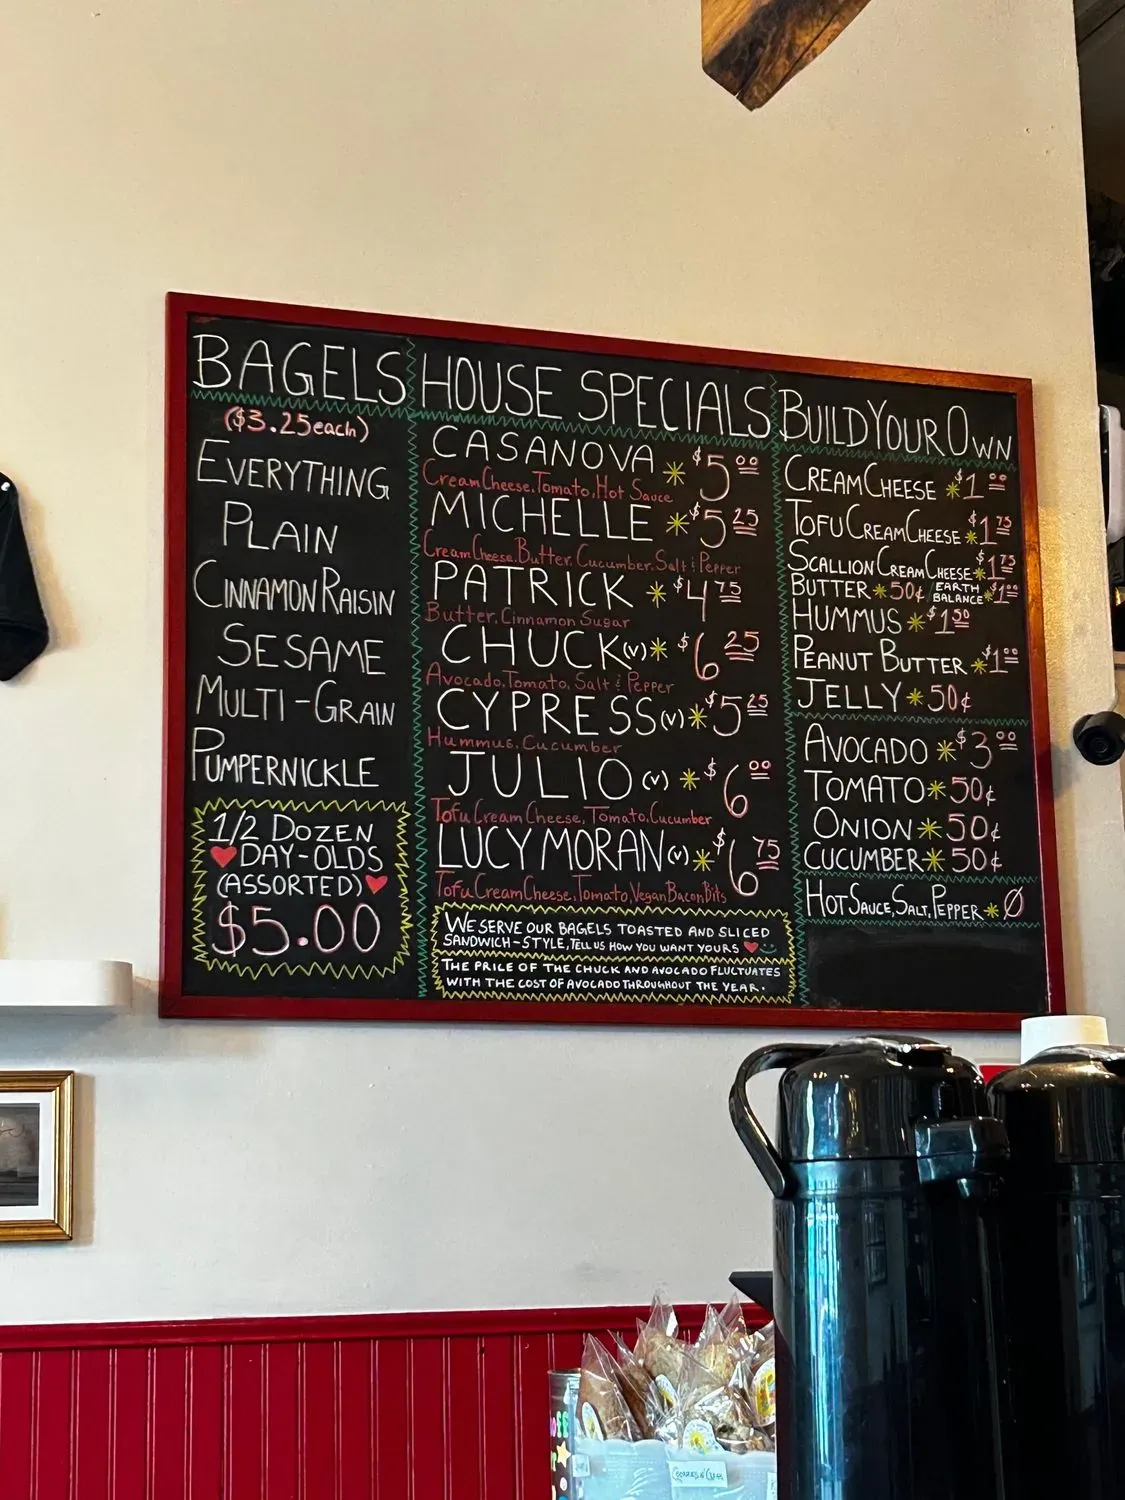 BAGELS
($3.25 each)
EVERYTHING
PLAIN
CINNAMON RAISIN
SESAME
MULTI-GRAIN
PUMPERNICKLE
1/2 DOZEN
DAY-OLDS
(ASSORTED)
$5.00
HOUSE SPECIALS
CASANOVA * $5.00
Cream Cheese, Tomato, Hot Sauce
MICHELLE * $5.25
Cream Cheese, Butter, Cucumber, Salt & Pepper
PATRICK * $4.75
Butter, Cinnamon Sugar
CHUCK (V) * $6.25
Avocado, Tomato, Salt & Pepper
CYPRESS (V) * $5.25
Hummus, Cucumber
JULIO (V) * $6.00
Tofu Cream Cheese, Tomato, Cucumber
LUCY MORAN (V) * $6.75
Tofu Cream Cheese, Tomato, Vegan Bacon Bits
WE SERVE OUR BAGELS TOASTED AND SLICED
SANDWICH-STYLE, TELL US HOW YOU WANT YOURS
THE PRICE OF THE CHUCK AND AVOCADO FLUCTUATES
WITH THE COST OF AVOCADO THROUGHOUT THE YEAR.
BUILD YOUR OWN
CREAM CHEESE * $1.00
TOFU CREAM CHEESE * $1.75
SCALLION CREAM CHEESE * $1.75
BUTTER * 50¢ EARTH BALANCE * $1.00
HUMMUS * $1.50
PEANUT BUTTER * $1.00
JELLY * 50¢
AVOCADO * $3.00
TOMATO * 50¢
ONION * 50¢
CUCUMBER * 50¢
HOT SAUCE, SALT, PEPPER * Ø